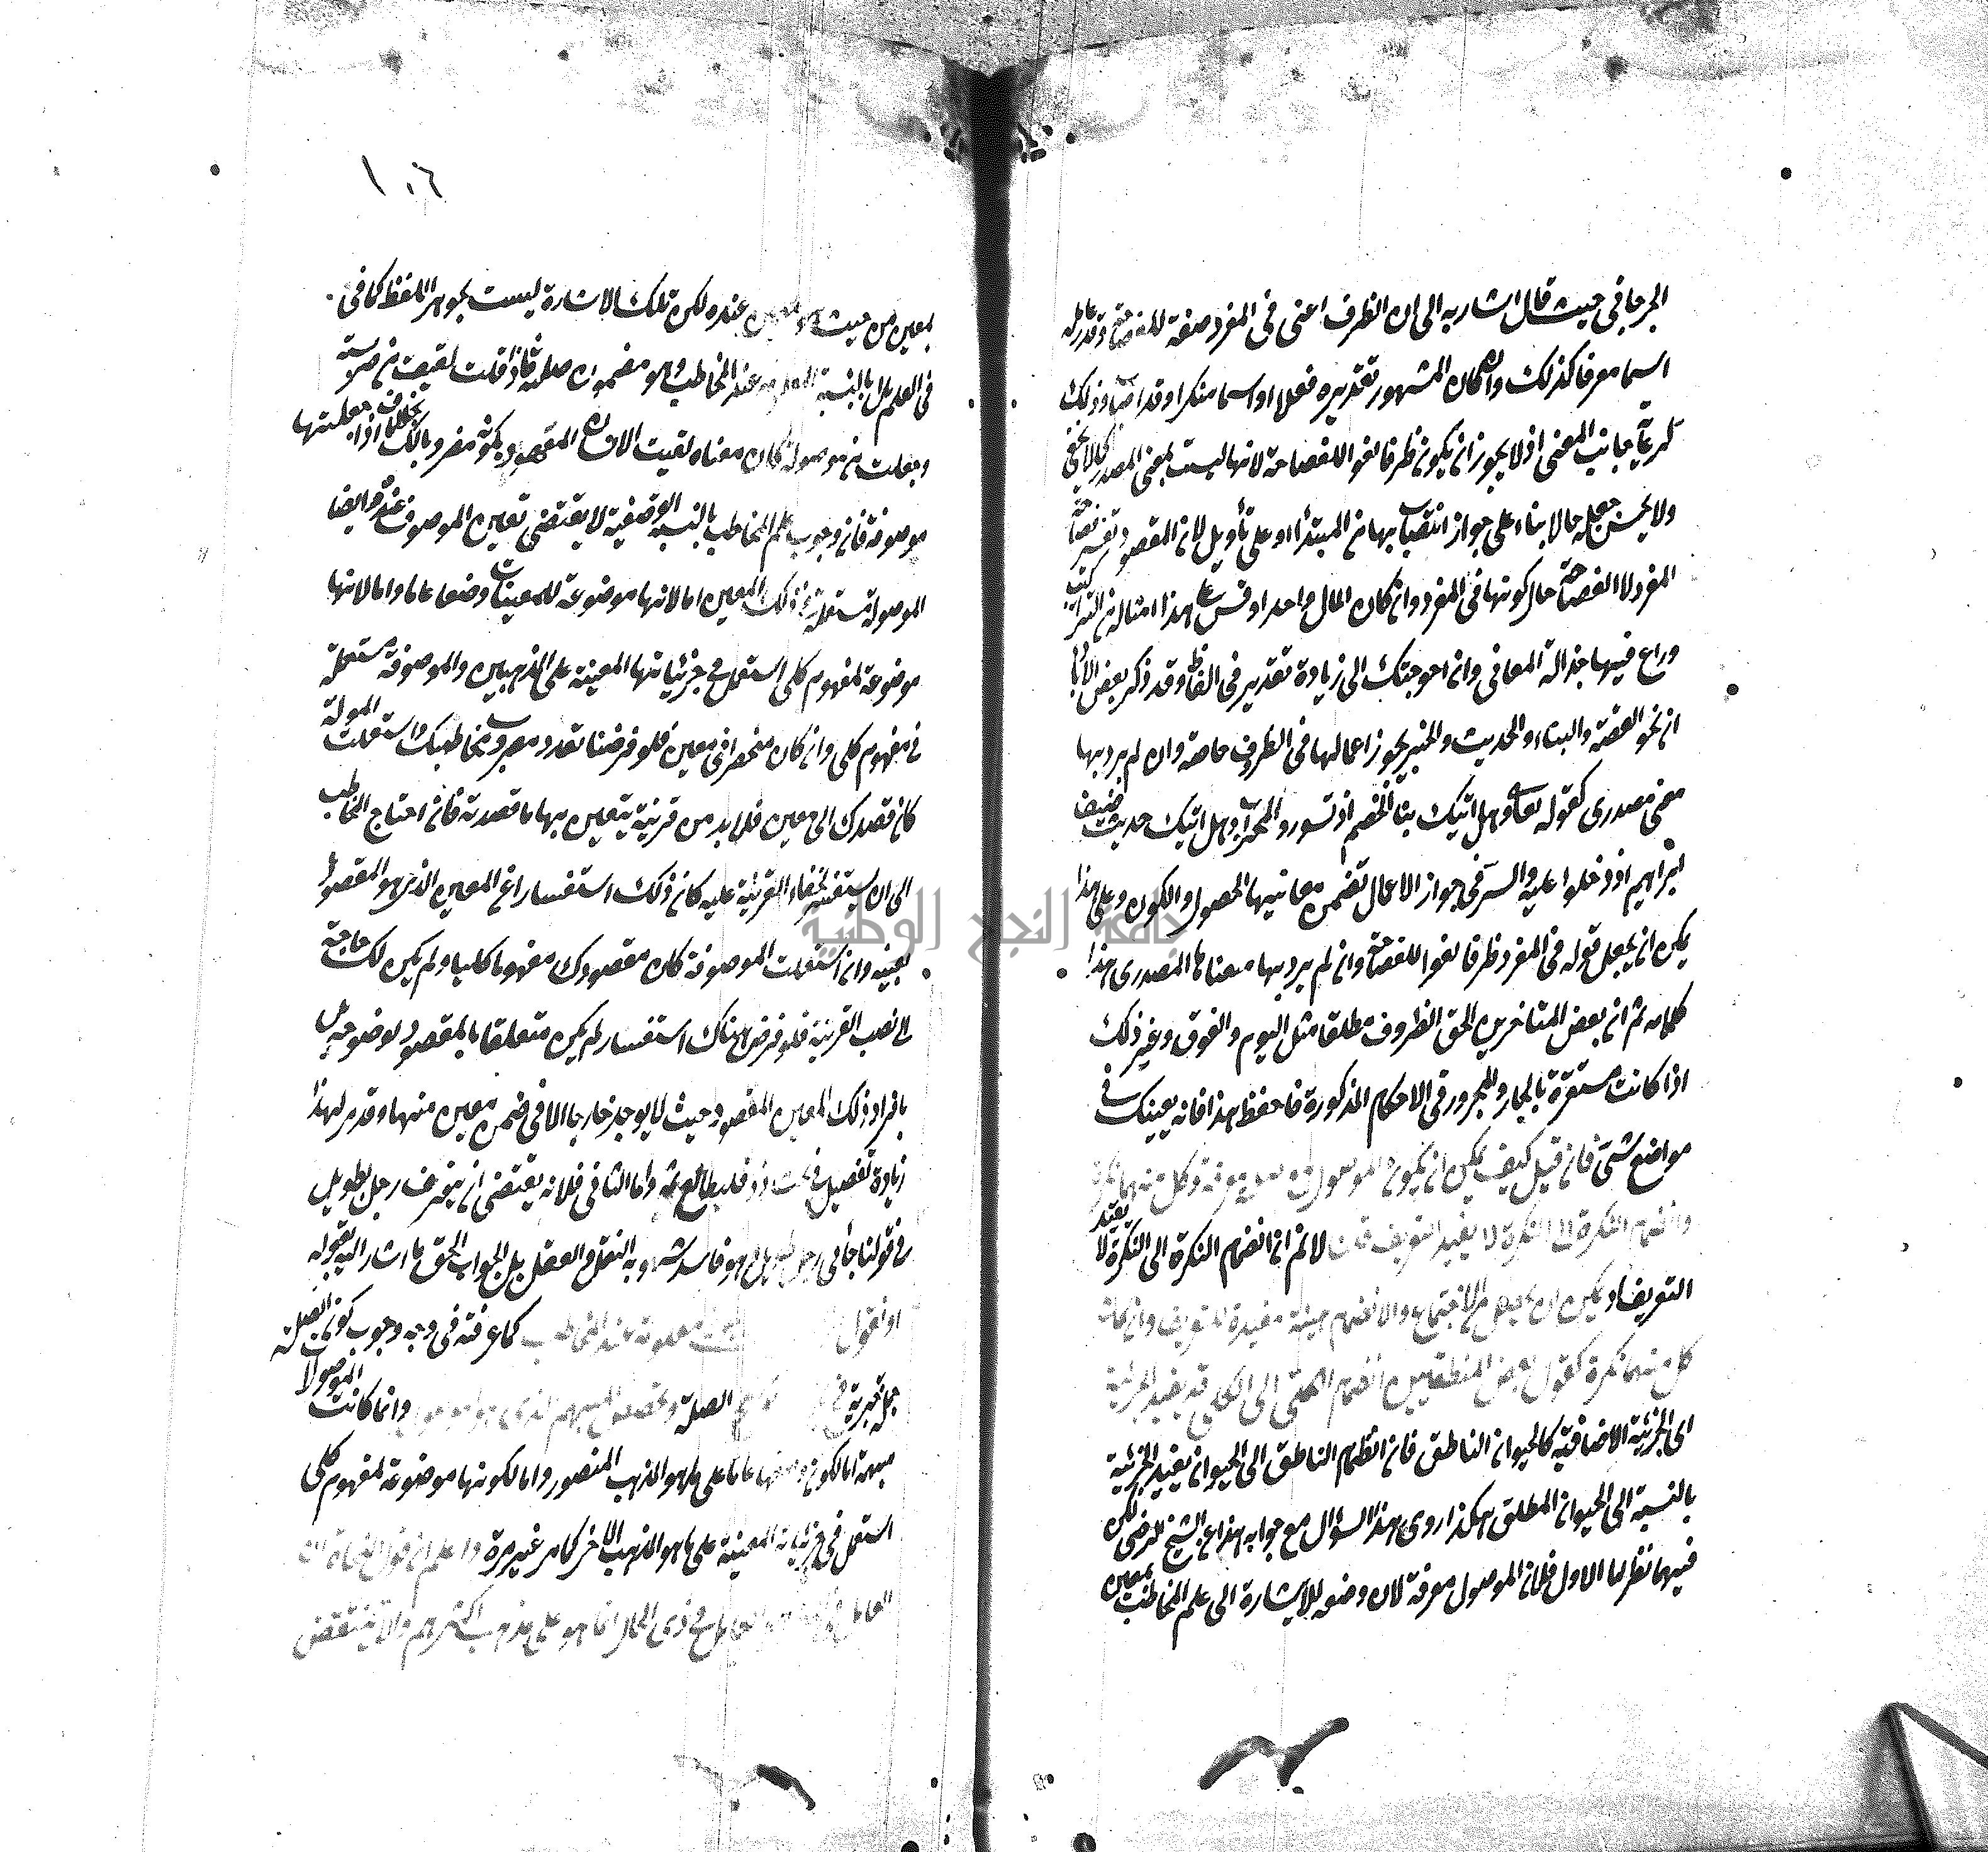 الجرجاني حيث قال اشار به الى ان الظرف اعني في المفرد صفة للفصاحة وقدر عامله
اسما معرفا كذلك وان كان المشهور تقديره فعلا او اسما منكرا وقد اصاب وذلك
لرعاية جانب المعنى اذ لا يجوز ان يكون ظرفا لغوا للفصاحة لانها ليست بمعنى المصدر كما لا يخفى
ولا يحسن جعله حالا بناء على جواز انتصابها من المبتدأ او على تأويل لان المقصود تفسير فصاحة
المفرد لا الفصاحة حال كونها في المفرد وان كان المال واحدا وقس على هذا امثاله من التراكيب
وراع فيها جزالة المعاني وان احوجتك الى زيادة تقدير في الفاظ وقد ذكر بعض الادبا
ان نحو القصة والنباء والحديث والخبر يجوز اعمالها في الظروف خاصة وان لم يرد بها
معنى مصدري كقوله تعالى وهل اتيك نبأ الخصم اذ تسوروا المحراب وهل اتيك حديث ضيف
ابراهيم اذ دخلوا عليه والسر في جواز الاعمال تضمن معانيها الحصول والكون وعلى هذا
يمكن ان يجعل قوله في المفرد ظرفا لغوا للفصاحة وان لم يرد بها معناها المصدري هذا
كلامه ثم ان بعض المتاخرين الحق الظروف مطلقا مثل اليوم والفوق وغير ذلك
اذا كانت مستقرة بالجار والمجرور في الاحكام المذكورة فاحفظ هذا فانه يعينك في
مواضع شتى فان قيل كيف يمكن ان يكون الموصول مع صلة معرفة وكل منهما نكرة
وانضمام النكرة الى النكرة لا يفيد التعريف قلت لا نم ان انضمام النكرة الى النكرة لا يفيد
التعريف اذ يمكن ان يحصل من الاجتماع والانضمام هيئة مفيدة للتعريف وان كانت
كل منهما نكرة كقول بعض المنطقيين انضمام الكلي الى الكلي قد يفيد الجزئية
الى الجزئية الاضافية كالحيوان الناطق فان انظمام الناطق الى الحيوان يفيد الجزئية
بالنسبة الى الحيوان المطلق هكذا روى هذا السؤال مع جوابه هذا عن الشيخ الرضى لكن
فيهما نظر اما الاول فلان الموصول معرفة لان وضعه للاشارة الى علم المخاطب بمعين
١٠٦
بمعين من حيث هو معين عنده لكن تلك الاشارة ليست بجوهر اللفظ كما في
في العلم بل بالنسبة المعلومة عند المخاطب وهو مضمون صلته فاذا قلت لقيت من ضربته
وجعلت من موصولة كان معناه لقيت الانسان المقصود بكونه مضروبا لك بخلاف ما اذا جعلتها
موصوفة فان وجوب علم المخاطب بالنسبة الوصفية لا يقتضي تعيين الموصوف عنده وايضا
الموصولة مستعملة في ذلك المعين اما لانها موضوعة للمعينات وضعا عاما واما لانها
موضوعة لمفهوم كلي استعمل في جزئياتها المعينة على المذهبين والموصوفة مستعملة
في مفهوم كلي وان كان منحصرا في معين فلو فرضنا تعدد مضروب مخاطبك واستعملت الموصولة
كان قصدك الى معين فلا بد من قرينة يتعين بها ما قصدته فان احتاج المخاطب
الى ان يستفسر لخفاء القرينة عليه كان ذلك استفسارا عن المعين الذي هو المقصود
بعينه وان استعملت الموصوفة كان مقصودك مفهوما كليا ولم يكن لك حاجة
الى نصب القرينة فلو فرض هناك استفسار لم يكن متعلقا بالمقصود لوضوحه بل
بافراد ذلك المعين المقصود حيث لا يوجد خارجا الا في ضمن معين منها وقد مر لهذا
زيادة تفصيل في بحث ذو فليطالع ثمه واما الثاني فلانه يقتضي ان يتعرف رجل بطويل
في قولنا جاءني رجل طويل وهو فاسد شهد به النقل والعقل بل الجواب الحق ما اشار اليه بقوله
او نقول معلومة عند المخاطب كما عرفته في وجه وجوب كون الصلة
جملة خبرية في الصلة وتخصص المبهم الذي هو الموصول وانما كانت الموصولات
مبهمة اما لكون وضعها عاما على ما هو المذهب المنصور واما لكونها موضوعة لمفهوم كلي
استعمل في جزئياته المعينة على ما هو المذهب الاخر كما مر غير مرة واعلم ان قول النحاة ان
العامل في الحال هو العامل في ذي الحال انما هو على مذهب اكثرهم والا ينتقض
جامعة النجاح الوطنية